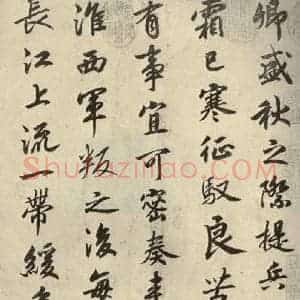 卿盛秋之際提兵
霜已寒征馭良苦
有事宜可密奏來
淮西軍叛之後每
長江上流一帶緩
Shufaziliao.com